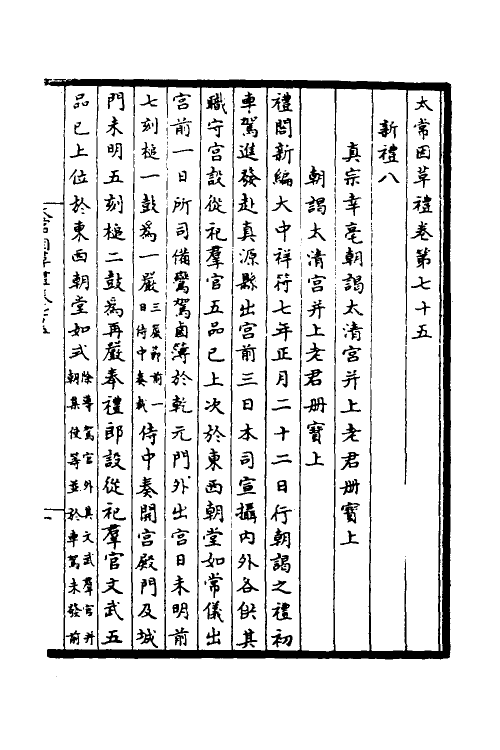 太常因革禮卷第七十五
新禮八
真宗幸亳朝謁太清宮并上老君册寶上
朝謁太清宮并上老君册寶上
禮閣新編大中祥符七年正月二十二日行朝謁之禮初
車駕進發赴真源縣出宮前三日本司宣攝內外各供其
職守宮設從祀羣官五品已上次於東西朝堂如常儀出
宮前一日所司備鸞駕鹵簿於乾元門外出宮日未明前
七刻槌一鼓為一嚴三嚴節前一日侍中奏裁侍中奏開宮殿門及城
門未明五刻槌二鼓為再嚴奉禮郎設從祀羣官文武五
品已上位於東西朝堂如式除導駕官外其文武羣官并朝集使等並於車駕未發前